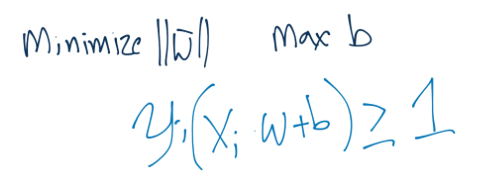 Minimize ||w̄|| Max b
yᵢ(xᵢ·w+b) ≥ 1